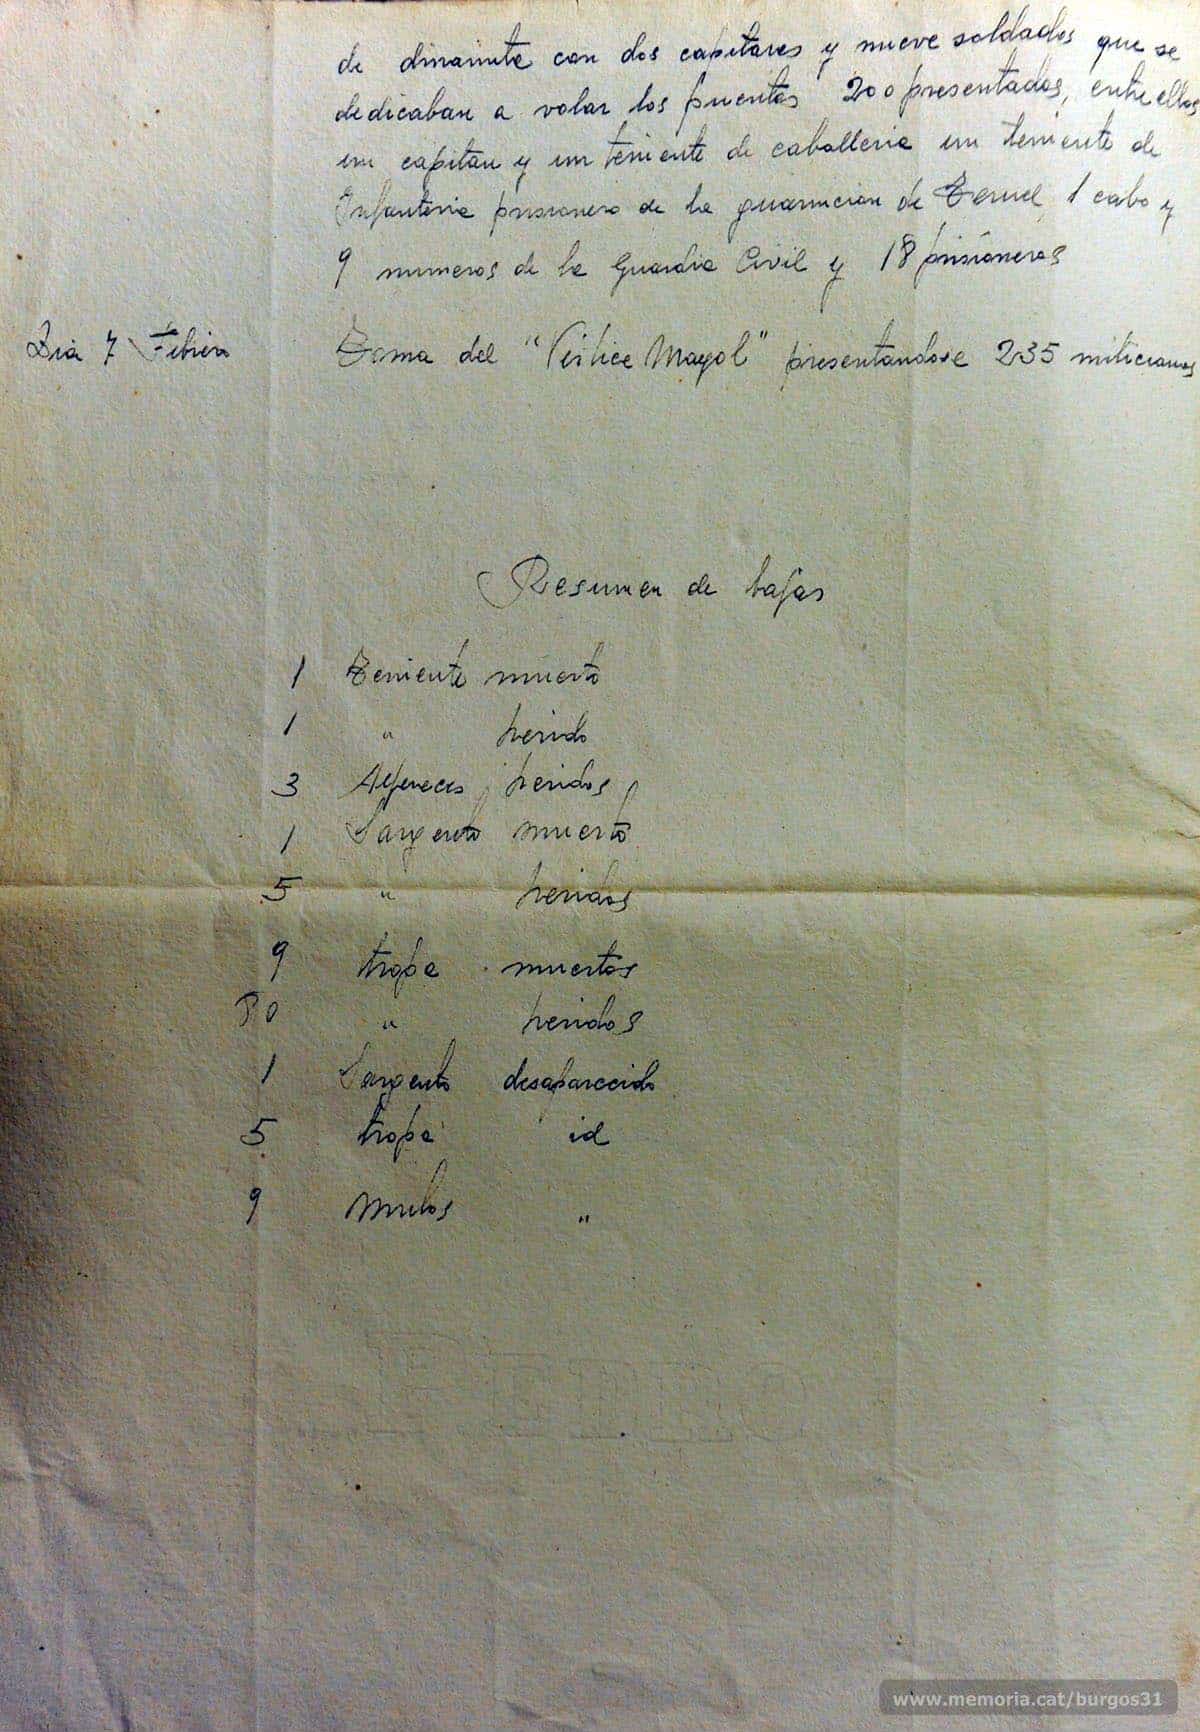 de dinamita con dos capitanes y nueve soldados que se
dedicaban a volar los puentes 200 presentados, entre ellos
un capitan y un teniente de caballeria un teniente de
Infanteria prisionero de la guarnicion de Teruel, 1 cabo y
9 numeros de la Guardia Civil y 18 prisioneros
Dia 7 Febrero Toma del "Vertice Mayol" presentandose 235 milicianos
Resumen de bajas
1 Teniente muerto
1 " herido
3 Alfereces heridos
1 Sargento muerto
5 " heridos
9 tropa muertos
80 " heridos
1 Sargento desaparecido
5 tropa id
9 Mulos "
www.memoria.cat/burgos31